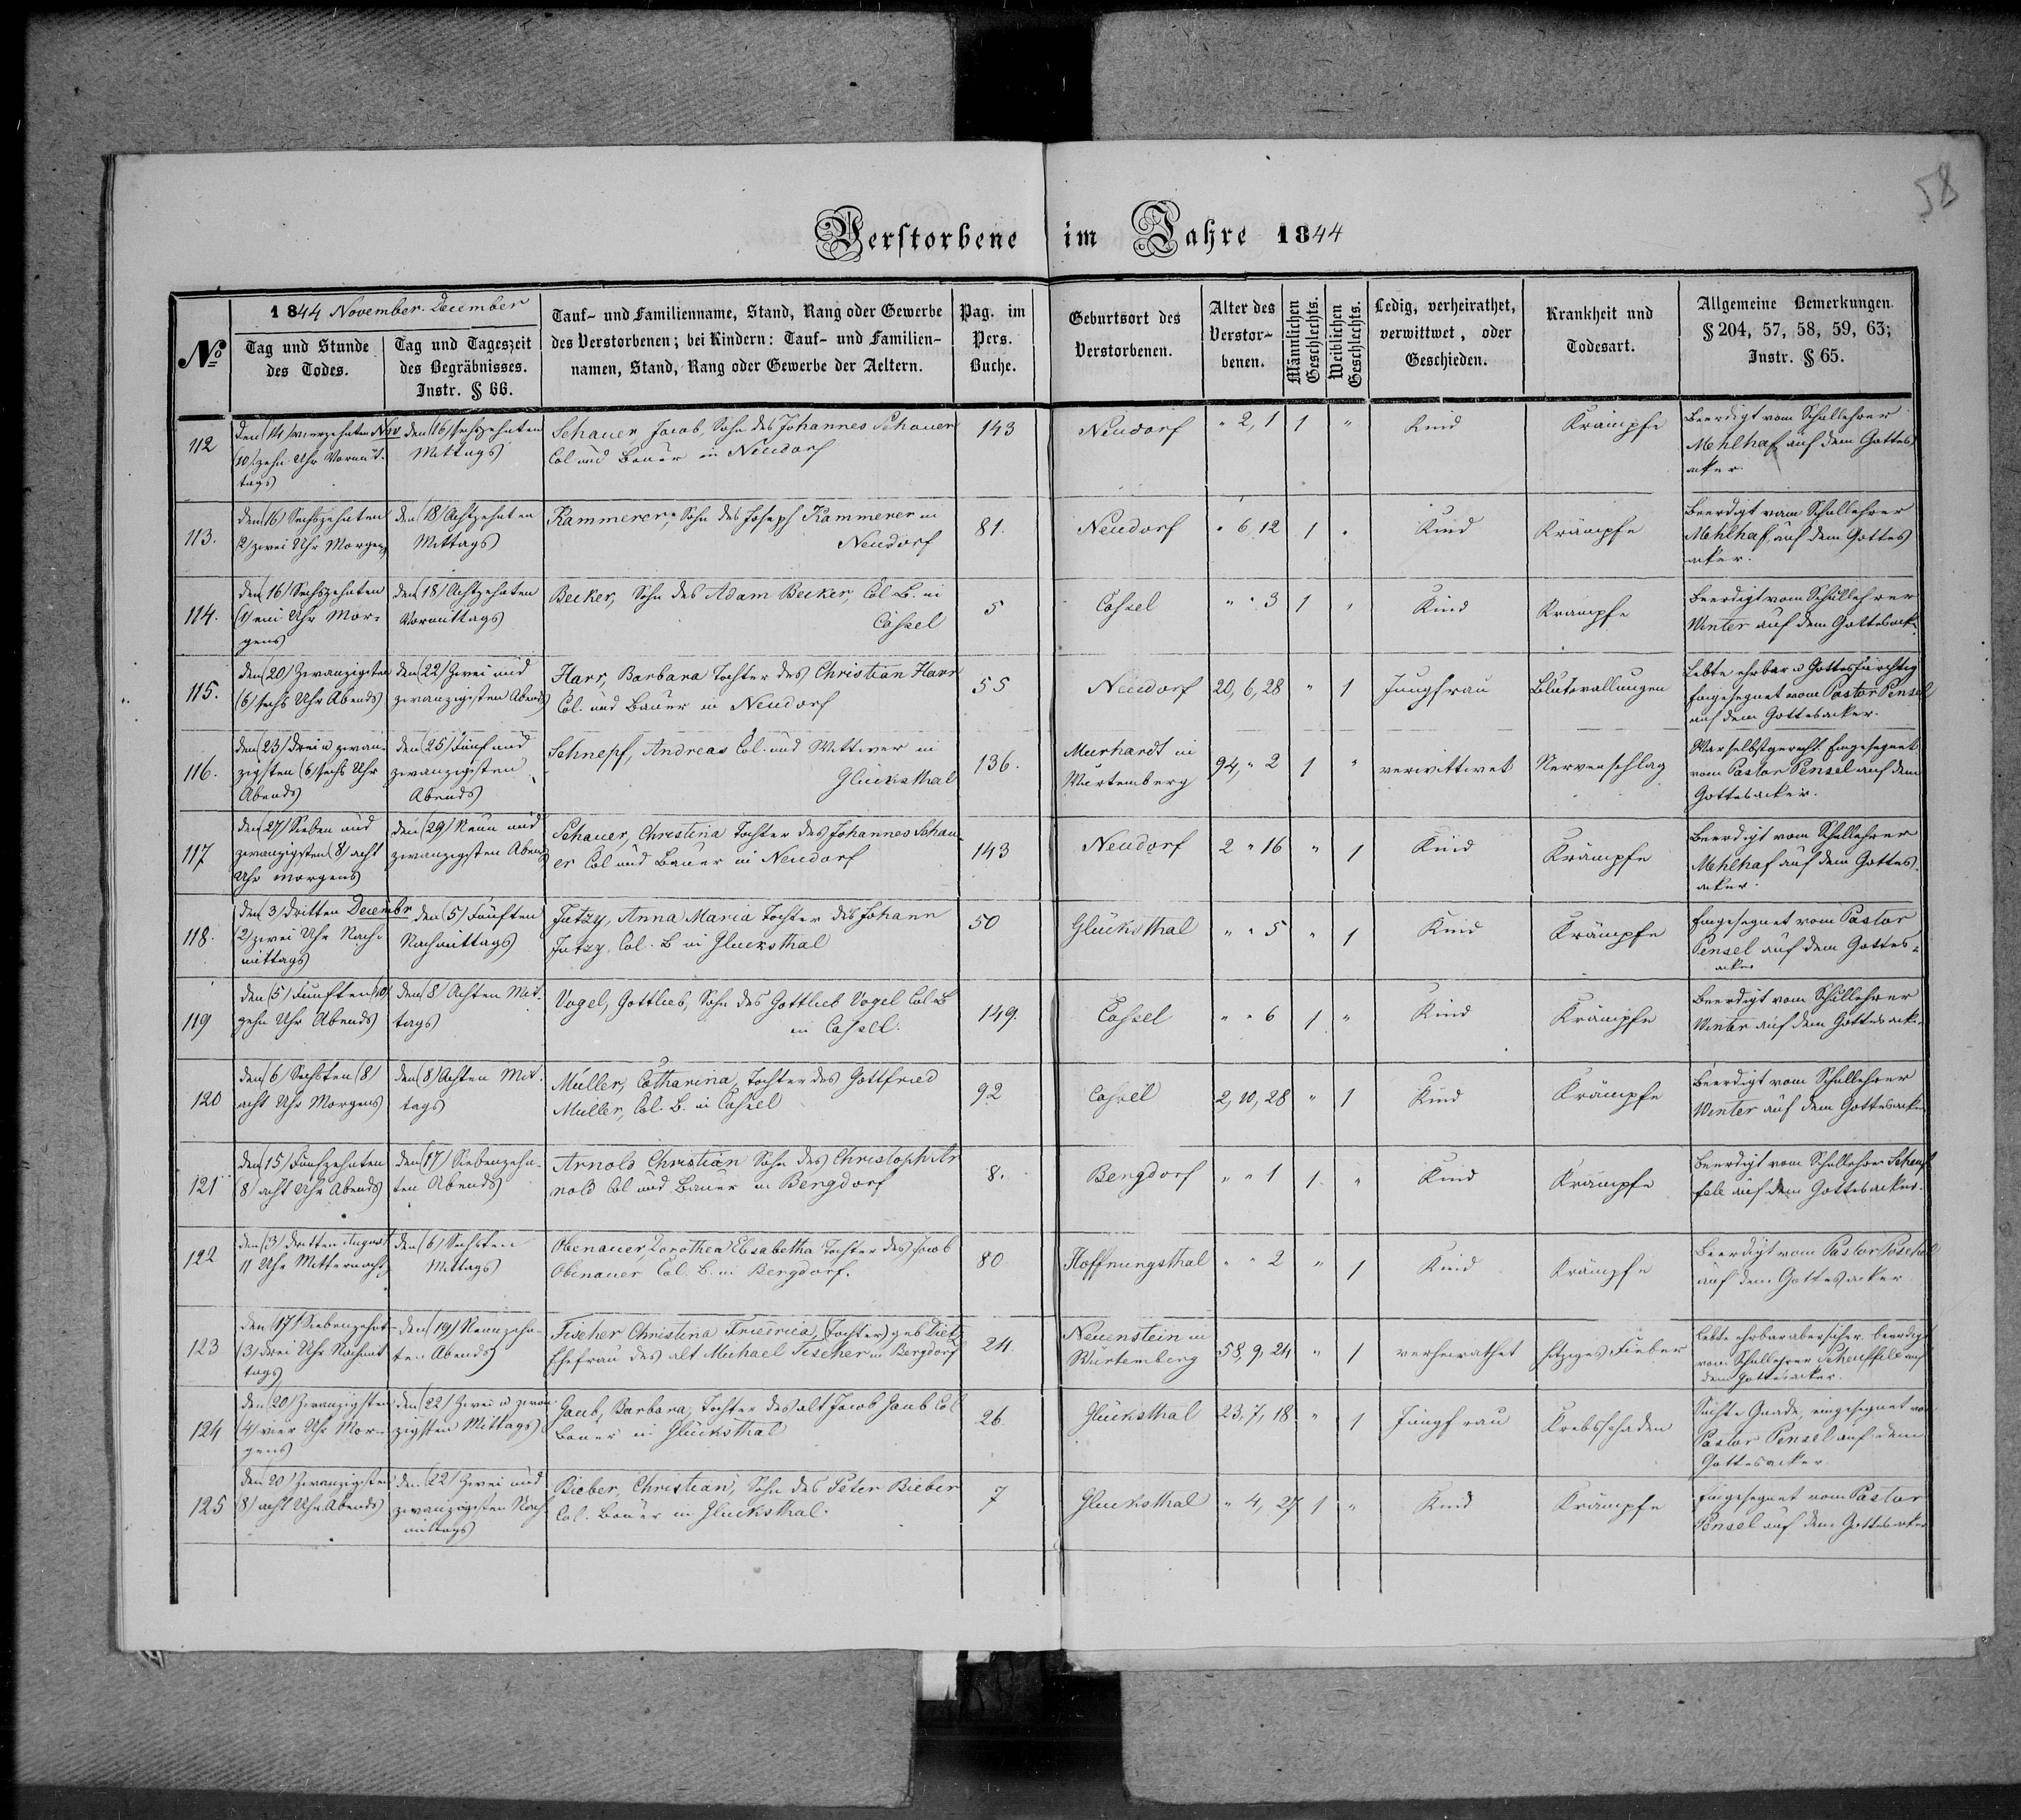 58
Verstorbene im Jahre 1844
No
1844 November. December
Tag und Stunde
des Todes.
Tag und Tageszeit
des Begräbnisses.
Instr. § 66.
Tauf- und Familienname, Stand, Rang oder Gewerbe
des Verstorbenen; bei Kindern: Tauf- und Familien-
namen, Stand, Rang oder Gewerbe der Aeltern.
Pag. im
Pers.
Buche.
Geburtsort des
Verstorbenen.
Alter des
Verstor-
benen.
Männlichen
Geschlechts.
Weiblichen
Geschlechts.
Ledig, verheirathet,
verwittwet, oder
Geschieden.
Krankheit und
Todesart.
Allgemeine Bemerkungen.
§ 204, 57, 58, 59, 63;
Instr. § 65.
112
den (14) vierzehnten Nov
(10) zehn Uhr Vormit-
tags
den (16) sechzehnten
Mittags
Schauer, Jacob, Sohn des Johannes Schauer
Col und Bauer in Neudorf
143
Neudorf
" 2, 1
1
"
Kind
Krämpfe
Beerdigt vom Schullehrer
Mehlhaf auf dem Gottes
acker.
113.
den (16) Sechszehnten
(2) zwei Uhr Morgens
den (18) Achtzehnten
Mittags
Kammerer, Sohn des Joseph Kammerer in
Neudorf
81.
Neudorf
" 6, 12
1
"
Kind
Krämpfe
Beerdigt vom Schullehrer
Mehlhaf, auf dem Gottes
acker.
114.
den (16) Sechszehnten
(1) ein Uhr Mor-
gens
den (18) Achtzehnten
Vormittags
Becker, Sohn des Adam Becker, Col. B. in
Cassel
5
Cassel
" " 3
1
"
Kind
Krämpfe
Beerdigt vom Schullehrer
Winter auf dem Gottesack.
115.
den (20) Zwanzigsten
(6) sechs Uhr Abends
den (22) Zwei und
zwanzigsten Abends
Harr, Barbara Tochter des Christian Harr
Col. und Bauer in Neudorf
55
Neudorf
20, 6, 28
"
1
Jungfrau
Blutwallungen
Lebte ehrbar u Gottesfürchtig
Eingesegnet vom Pastor Pensel
auf dem Gottesacker.
116.
den (23) drei u zwan-
zigsten (6) sechs Uhr
Abends
den (25) Fünf und
zwanzigsten
Abends
Schnepf, Andreas Col. und Wittwer in
Glücksthal
136.
Murhardt in
Würtemberg
94, " 2
1
"
verwittwet
Nervenschlag
War selbstgerecht. Eingesegnet
vom Pastor Pensel auf dem
Gottesacker.
117
den (27) Sieben und
zwanzigsten (8) acht
Uhr morgens
den (29) Neun und
zwanzigsten Abends
Schauer, Christina Tochter des Johannes Schau-
er Col und Bauer in Neudorf
143
Neudorf
2 " 16
"
1
Kind
Krämpfe
Beerdigt vom Schullehrer
Mehlhaf auf dem Gottes
acker.
118.
den (3) dritten Decembr
(2) zwei Uhr Nach-
mittags
den (5) Fünften
Nachmittags
Jutzy, Anna Maria Tochter des Johann
Jutzy, Col. B in Glücksthal
50
Glücksthal
" " 5
"
1
Kind
Krämpfe
Eingesegnet vom Pastor
Pensel auf dem Gottes-
acker
119
den (5) Fünften (10)
zehn Uhr Abends
den (8) Achten Mit-
tags
Vogel, Gottlieb, Sohn des Gottlieb Vogel Col B
in Cassel.
149.
Cassel
" " 6
1.
"
Kind
Krämpfe
Beerdigt vom Schullehrer
Winter auf dem Gottesack.
120
den (6) Sechsten (8)
acht Uhr Morgens
den (8) Achten Mit-
tags
Müller, Catharina, Tochter des Gottfried
Müller, Col. B. in Cassel
92
Cassel
2, 10, 28
"
1
Kind
Krämpfe
Beerdigt vom Schullehrer
Winter auf dem Gottesacke
121
den (15) Fünfzehnten
(8) acht Uhr Abends
den (17) Siebenzehn-
ten Abends
Arnold Christian Sohn des Christoph Ar
nold Col und Bauer in Bergdorf
8.
Bergdorf
" " 1
1.
"
Kind
Krämpfe
Beerdigt vom Schullehrer Scheuf
fele auf dem Gottesacker.
122
den (3) dritten August
11 Uhr Mitternacht
den (6) Sechsten
Mittags
Obenauer, Dorothea Elisabetha Tochter des Jacob
Obenauer Col. B. in Bergdorf.
80
Hoffnungsthal
" " 2
"
1
Kind
Krämpfe
Beerdigt vom Pastor
auf dem Gottesacker
123
den (17) Siebenzehnt-
(3) drei Uhr Nachmit
tags
den (19) Neunzehn-
ten Abends
Fischer Christina Friedrica, (Tochter) geb Dietz
Ehefrau des alt Michael Fischer in Bergdorf
24.
Neuenstein in
Würtemberg
58, 9, 24
"
1
verheirathet
hitziges Fieber
Lebte ehrbar aber sicher. beerdigt
vom Schullehrer Scheuffele auf
dem Gottesacker.
124
den (20) Zwanzigsten
(4) vier Uhr Mor-
gens
den (22) Zwei u zwan
zigsten Mittags
Gaub, Barbara, Tochter des alt Jacob Gaub Col
Bauer in Glücksthal
26.
Glücksthal
23, 7, 18
"
1
Jungfrau
Krebsschaden
Suchte Gnade, eingesegnet von
Pastor Pensel auf dem
Gottesacker.
125
den 20) Zwanzigsten
(8) acht Uhr Abends
den (22) Zwei und
zwanzigsten Nach
mittags
Bieber, Christian, Sohn des Peter Bieber
Col. Bauer in Glücksthal.
7
Glücksthal
" 4, 27
1
"
Kind
Krämpfe
Eingesegnet vom Pastor
Pensel auf dem Gottesacker